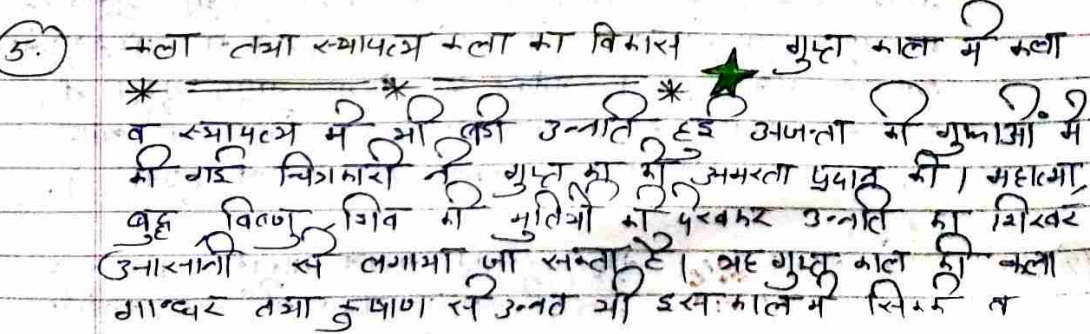 5. कला तथा स्थापत्य कला का विकास गुप्त काल में कला
व स्थापत्य में भी बडी उन्नति हुई अजन्ता की गुफाओं में
की गई चित्रकारी ने गुप्त को अमरता प्रदान की। महात्मा
बुद्ध विष्णु शिव की मुर्तियों को देखकर उन्नति का शिखर
आसानी से लगाया जा सकता है। यह गुप्त काल की कला
गान्धर तथा कुषाण से उन्नत थी इस काल में सिक्के व